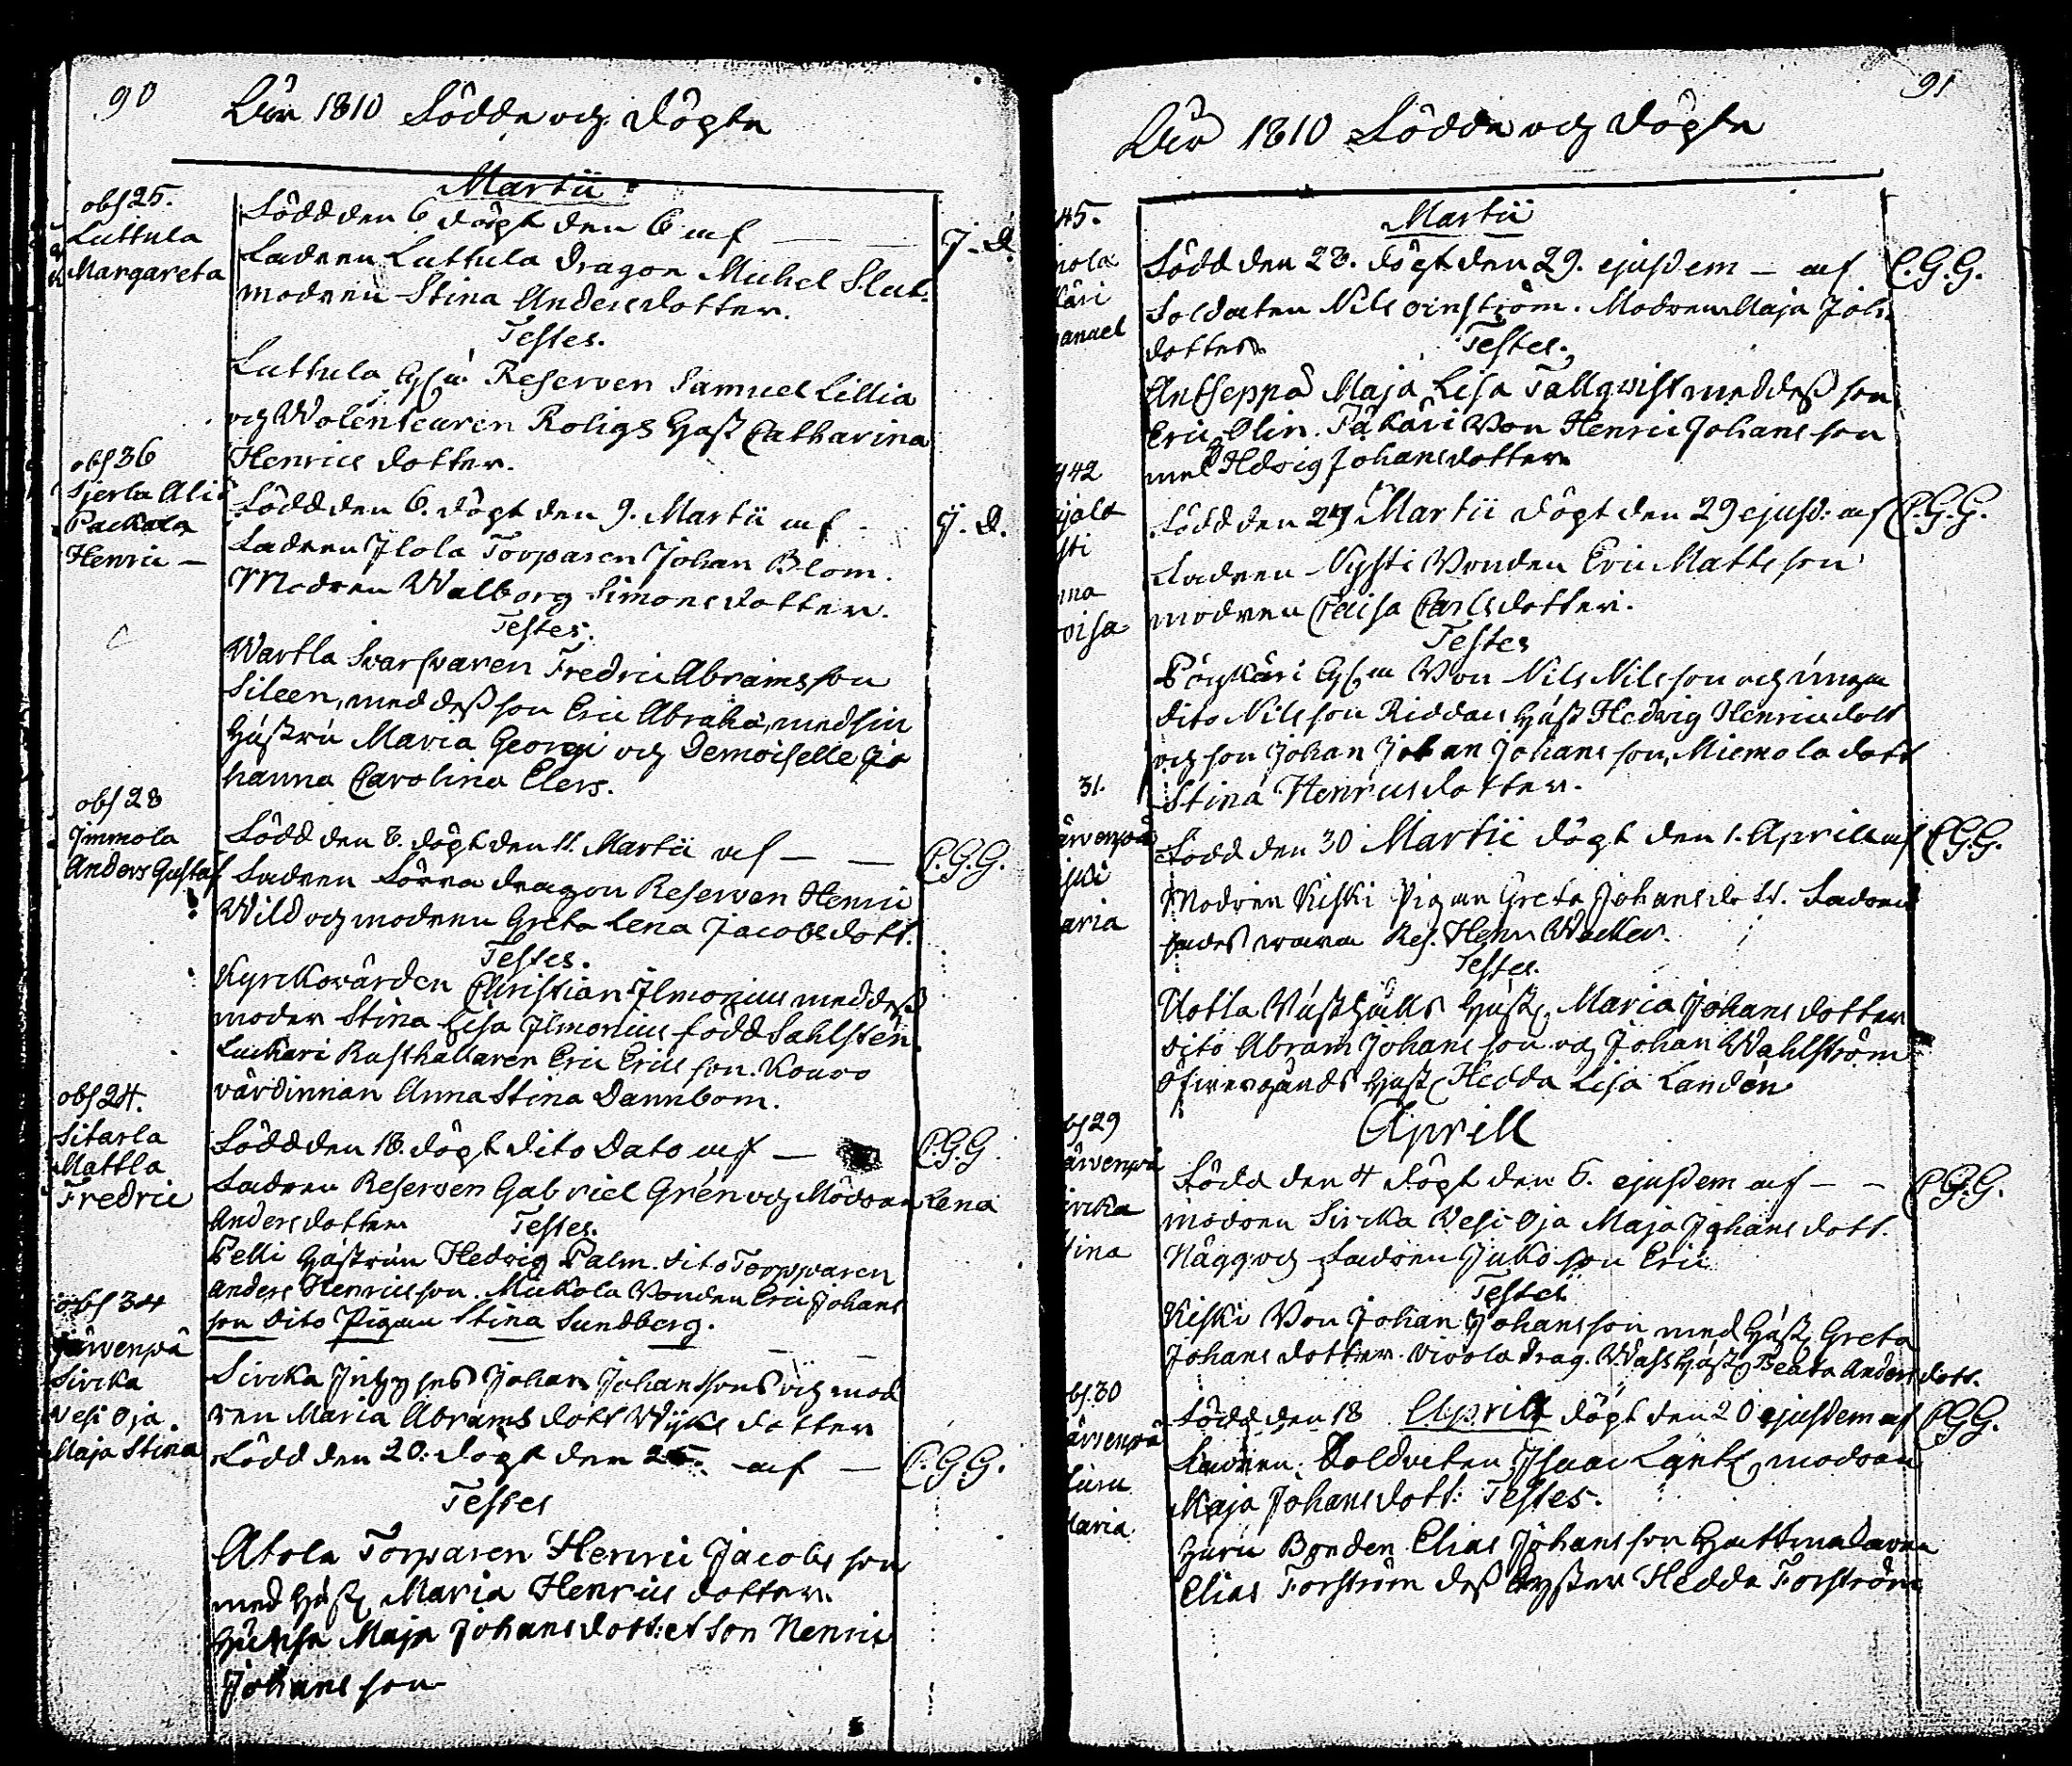 90
År 1810 Födde och Döpte
Martii
obs 25.
Luttula
Margareta
Född den 6 döpt den 6 af
J. D.
Fadren Luttula Dragon Michel Slut.
modren Stina Andersdotter.
Testes.
Luttula Reserven Samuel Lillia
och Wolenteuren Roligs Hust Catharina
Henrics dotter.
obs 36
Packala
Henric —
Född den 6. döpt den 9. Martii af
J. D.
Fadren Ilola Torparen Johan Blom.
Modren Walborg Simonsdotter.
Testes.
Wartla Svarfvaren Fredric Abramsson
Sileen, med dess son Eric Abraha, med sin
Hustru Maria Georgi och Demoiselle Jo
hanna Carolina Elers.
obs 28
Immola
Anders Gustaf
Född den 8. döpt den 11. Martii af — —
C.G.G.
Fadren Förra dragon Reserven Henric
Wild och modren Greta Lena Jacobsdott.
Testes.
Kyrckovärden Christian Ilmonius med dess
moder Stina Lisa Ilmonius född Sahlstén.
Lackari Rusthållaren Eric Ericsson. Kouvo
värdinnan Anna Stina Dannbom.
obs 24.
Sitarla
Mattla
Fredric
Född den 18. döpt dito Dato af —
C.G.G
Fadren Reserven Gabriel Grén och Modren Lena
Andersdotter Testes.
Pelli Hustrun Hedvig Palm. dito Torpparen
Anders Henricsson. Mickola Bonden Eric Johans
son dito Pigan Stina Sundberg.
obs 34
Järvenpä
Sircka
Vesi Oja
Maja Stina
Sircka Johan Johanssons och mod
ren Maria Abramsdott dotter
Född den 20. döpt den 25. af —
C.G.G.
Testes
Atola Torparen Henric Jacobs son
med Hust Maria Henrics dotter.
Maja Johansdott: et son Henric
Johansson
91
År 1810 Födde och Döpte
Martii
45.
Född den 28. döpt den 29. ejusdem — af
C.G.G.
Soldaten Nils Örnström. Modren Maja Joh.
dotter. Testes.
Antseppä Maja Lisa Tallqvist med dess son
Eric Olin. Päkäri Bon Henric Johansson
med Hedvig Johansdotter
42
Född den 27 Martii döpt den 29 ejusd: af
C.G.G.
Fadren Nysti Bonden Eric Matts son
modren Caisa Carlsdotter.
Testes
Bon Nils Nilsson och unga
dito Nilsson Riddars Hust Hedvig Henricsdott
och son Johan Johan Johansson, Miemola dott
Stina Henricsdotter.
31.
aria
Född den 30 Martii döpt den 1. Aprill af
C.G.G.
Modren Kiski Pigan Greta Johansdott. Fadren
sades vara Res. Henr Wacker.
Testes.
Uotla Hust Maria Johansdotter
dito Abram Johansson och Johan Wahlström
Hust Hedda Lisa Landén
Aprill
obs 29
ärvenpä
ircka
tina
Född den 4 döpt den 6. ejusdem af — —
C.G.G.
modren Sircka Vesi Oja Maja Johansdott.
Hägg och Fadren Juko son Eric
Testes
Kiski Bon Johan Johansson med Hust Greta
Johansdotter. Hust Beata Andersdott.
obs 30
ärvenpä
aria
Född den 18 Aprill döpt den 20 ejusdem af
C.G.G.
Fadren Soldaten Isaac modren
Maja Johansdott: Testes.
Huru Bonden Elias Johansson Hattmakaren
Elias Forström dess Syster Hedda Forström